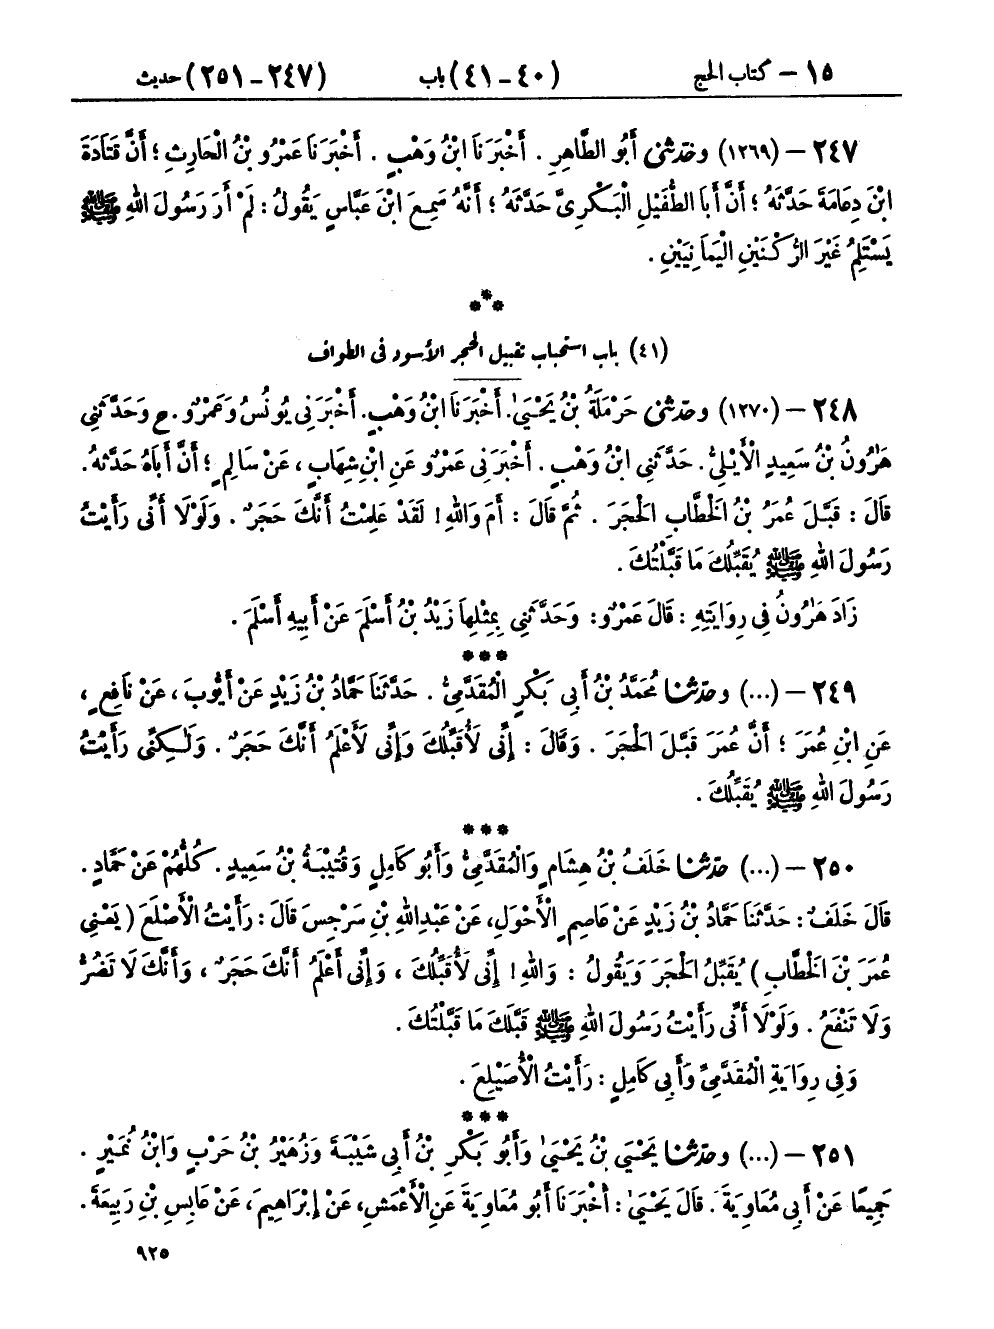 ١٥ – كتاب الحج (٤٠ – ٤١) باب (٢٤٧ – ٢٥١) حديث
٢٤٧ – (١٢٦٩) وحَدَّثَنِي أَبُو الطَّاهِرِ . أَخْبَرَنَا ابْنُ وَهْبٍ . أَخْبَرَنَا عَمْرُو بْنُ الْحَارِثِ ؛ أَنَّ قَتَادَةَ
ابْنَ دِعَامَةَ حَدَّثَهُ ؛ أَنَّ أَبَا الطُّفَيْلِ الْبَكْرِيَّ حَدَّثَهُ ؛ أَنَّهُ سَمِعَ ابْنَ عَبَّاسٍ يَقُولُ : لَمْ أَرَ رَسُولَ اللهِ ﷺ
يَسْتَلِمُ غَيْرَ الرُّكْنَيْنِ الْيَمَانِيَيْنِ .
***
(٤١) باب استحباب تقبيل الحجر الأسود فى الطواف
٢٤٨ – (١٢٧٠) وحَدَّثَنِي حَرْمَلَةُ بْنُ يَحْيَىٰ. أَخْبَرَنَا ابْنُ وَهْبٍ. أَخْبَرَنِي يُونُسُ وَعَمْرٌو. ح وَحَدَّثَنِي
هَٰرُونُ بْنُ سَعِيدٍ الْأَيْلِيُّ . حَدَّثَنِي ابْنُ وَهْبٍ . أَخْبَرَنِي عَمْرٌو عَنِ ابْنِ شِهَابٍ ، عَنْ سَالِمٍ ؛ أَنَّ أَبَاهُ حَدَّثَهُ.
قَالَ : قَبَّلَ عُمَرُ بْنُ الْخَطَّابِ الْحَجَرَ . ثُمَّ قَالَ : أَمَ وَاللهِ ! لَقَدْ عَلِمْتُ أَنَّكَ حَجَرٌ . وَلَوْلَا أَنِّي رَأَيْتُ
رَسُولَ اللهِ ﷺ يُقَبِّلُكَ مَا قَبَّلْتُكَ .
زَادَ هَٰرُونُ فِي رِوَايَتِهِ : قَالَ عَمْرٌو: وَحَدَّثَنِي بِمِثْلِهَا زَيْدُ بْنُ أَسْلَمَ عَنْ أَبِيهِ أَسْلَمَ .
***
٢٤٩ – (...) وحَدَّثَنَا مُحَمَّدُ بْنُ أَبِي بَكْرٍ الْمُقَدَّمِيُّ . حَدَّثَنَا حَمَّادُ بْنُ زَيْدٍ عَنْ أَيُّوبَ ، عَنْ نَافِعٍ ،
عَنِ ابْنِ عُمَرَ ؛ أَنَّ عُمَرَ قَبَّلَ الْحَجَرَ . وَقَالَ : إِنِّي لَأُقَبِّلُكَ وَإِنِّي لَأَعْلَمُ أَنَّكَ حَجَرٌ . وَلَٰكِنِّي رَأَيْتُ
رَسُولَ اللهِ ﷺ يُقَبِّلُكَ .
***
٢٥٠ – (...) حَدَّثَنَا خَلَفُ بْنُ هِشَامٍ وَالْمُقَدَّمِيُّ وَأَبُو كَامِلٍ وَقُتَيْبَةُ بْنُ سَعِيدٍ . كُلُّهُمْ عَنْ حَمَّادٍ .
قَالَ خَلَفٌ : حَدَّثَنَا حَمَّادُ بْنُ زَيْدٍ عَنْ عَاصِمٍ الْأَحْوَلِ، عَنْ عَبْدِاللهِ بْنِ سَرْجِسَ قَالَ : رَأَيْتُ الْأَصْلَعَ ( يَعْنِي
عُمَرَ بْنَ الْخَطَّابِ ) يُقَبِّلُ الْحَجَرَ وَيَقُولُ : وَاللهِ ! إِنِّي لَأُقَبِّلُكَ ، وَإِنِّي أَعْلَمُ أَنَّكَ حَجَرٌ ، وَأَنَّكَ لَا تَضُرُّ
وَلَا تَنْفَعُ . وَلَوْلَا أَنِّي رَأَيْتُ رَسُولَ اللهِ ﷺ قَبَّلَكَ مَا قَبَّلْتُكَ .
وَفِي رِوَايَةِ الْمُقَدَّمِيِّ وَأَبِي كَامِلٍ : رَأَيْتُ الْأُصَيْلِعَ .
***
٢٥١ – (...) وحَدَّثَنَا يَحْيَى بْنُ يَحْيَىٰ وَأَبُو بَكْرِ بْنُ أَبِي شَيْبَةَ وَزُهَيْرُ بْنُ حَرْبٍ وَابْنُ نُمَيْرٍ .
جَمِيعًا عَنْ أَبِي مُعَاوِيَةَ . قَالَ يَحْيَىٰ : أَخْبَرَنَا أَبُو مُعَاوِيَةَ عَنِ الْأَعْمَشِ، عَنْ إِبْرَاهِيمَ، عَنْ عَابِسِ بْنِ رَبِيعَةَ .
٩٢٥